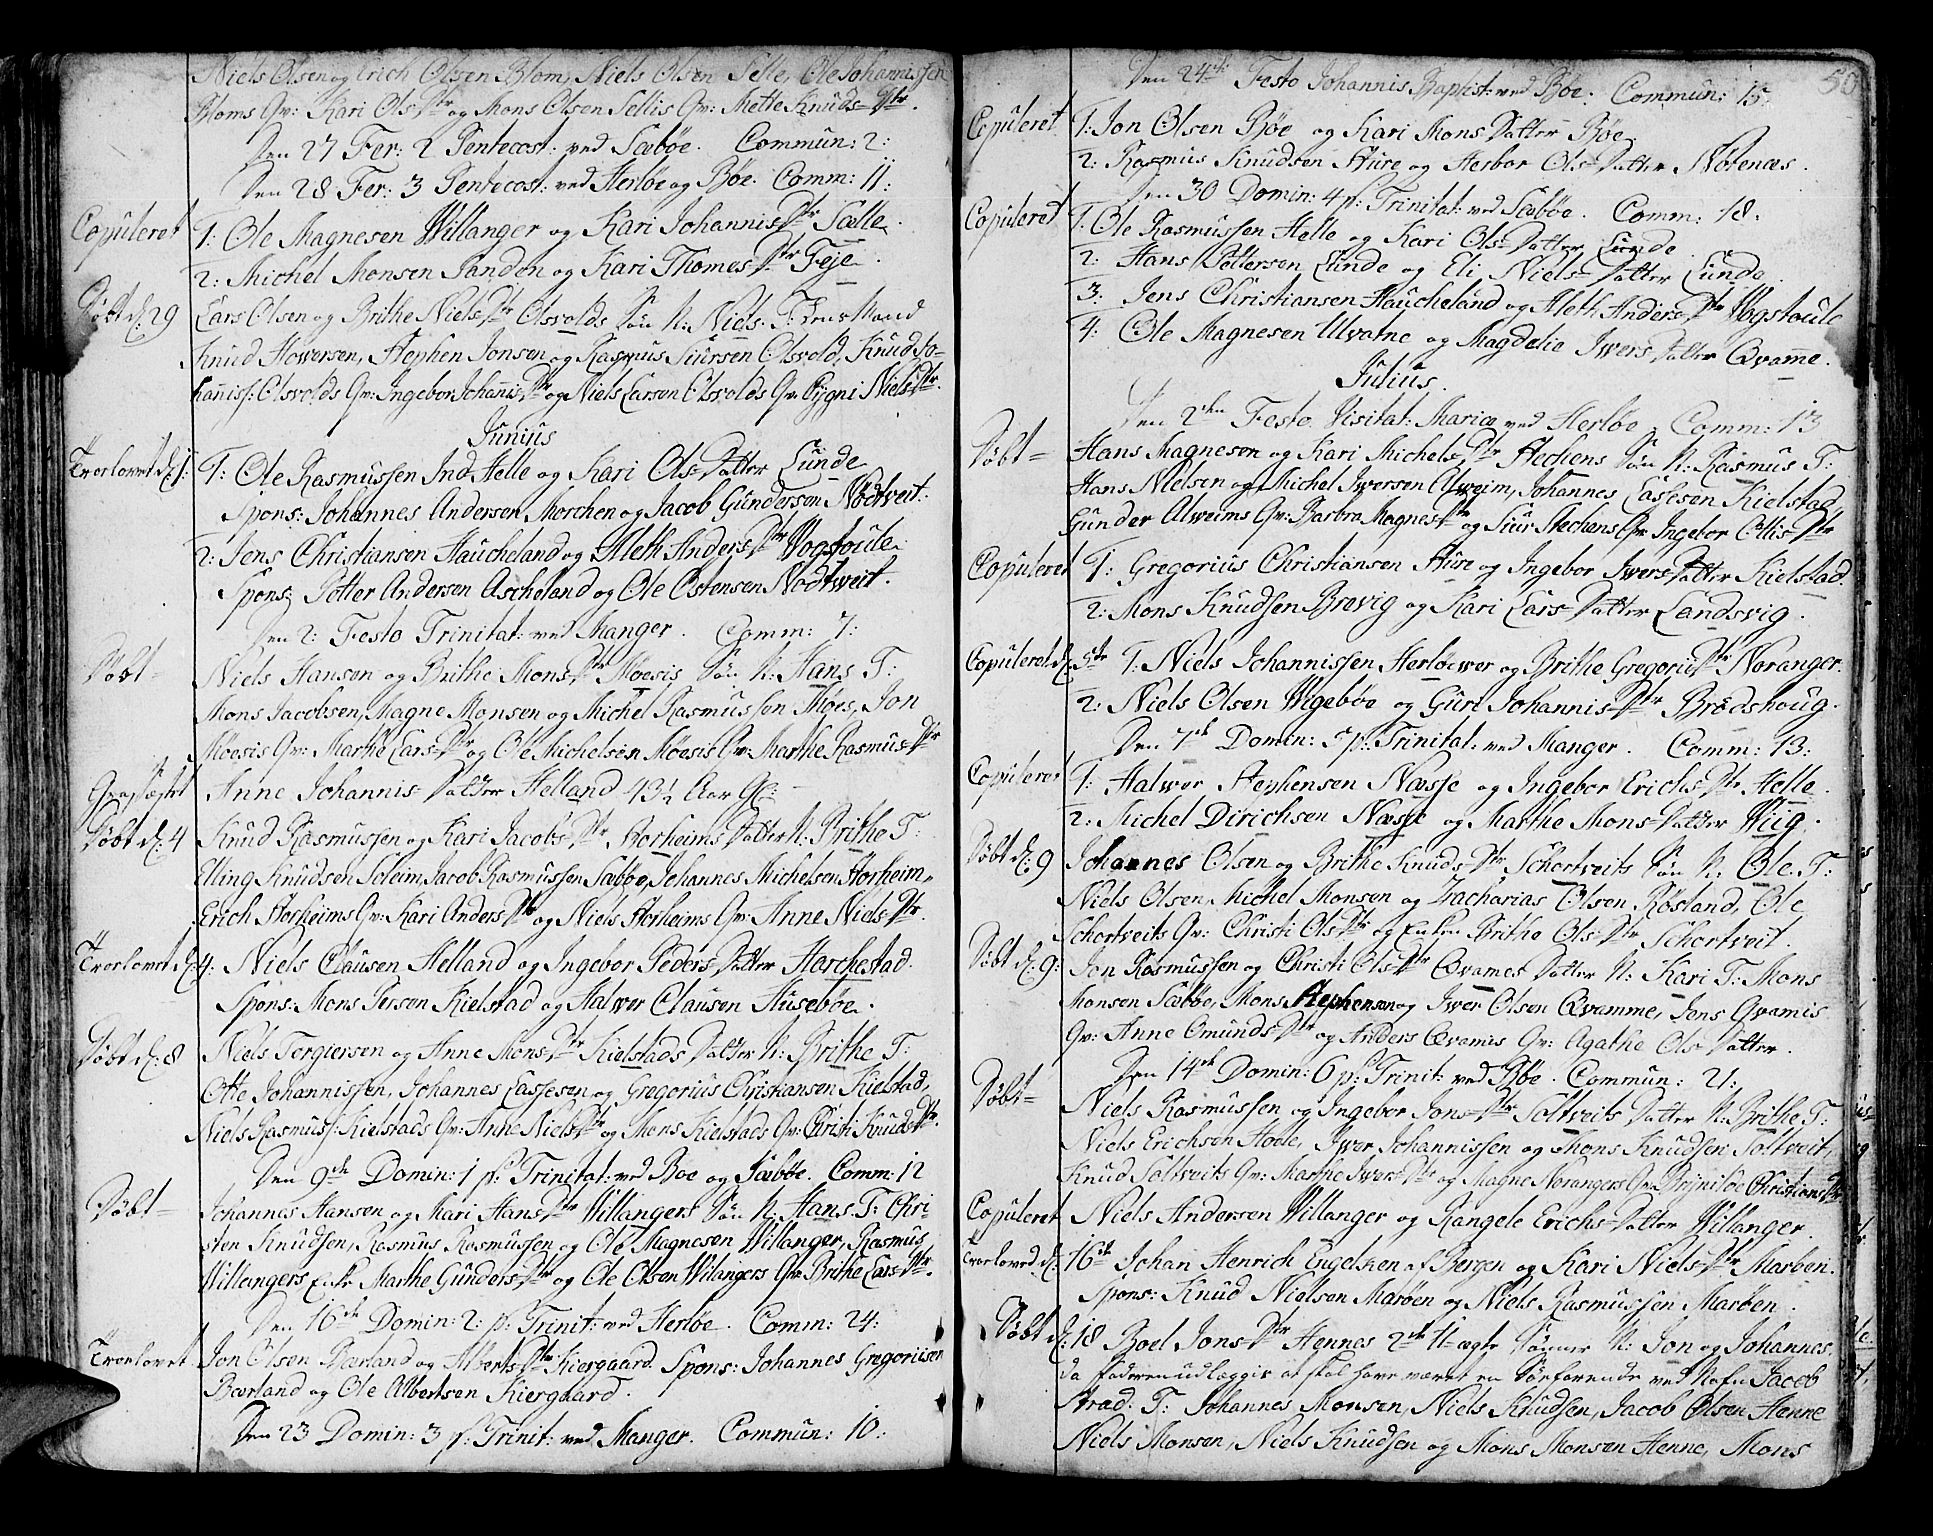 Niels Olsen og Erich Olsen Blom, Niels Olsen Selle, Ole Johannissen
Bloms Qv: Kari Ols Dtr og Mons Olsen Sellis Qv: Mette Knuds Dtr.
Den 27 Fer: 2 Pentecost: ved Sæbøe. Commun: 2:
Den 28 Fer: 3 Pentecost: ved Herløe og Bøe. Comm: 11:
Copuleret 1: Ole Magnesen Willanger og Kari Johannis Dtr Sælle.
2: Michel Monsen Sanden og Kari Thomes Dtr Feje.
Døbt d: 29 Lars Olsen og Brithe Niels Dtr Olsvolds Søn N: Niels. T:
Knud Howersen, Stephen Jonsen og Rasmus Siursen Olsvold, Knud Jo-
hannis: Olsvolds Qv: Ingebor Johanis Dtr og Niels Larsen Olsvolds Qv: Pygni Niels Dtr.
Junius
Trorlovet d: 1: 1: Ole Rasmussen Ind Helle og Kari Ols Datter Lunde
Spons: Johannes Andersen Morchen og Jacob Gundersen Nødtveit.
2: Jens Christiansen Haucheland og Aleth Anders Dtr Wogstoule.
Spons: Petter Andersen Ascheland og Ole Ostensen Nodtweit.
Den 2: Festo Trinitat: ved Manger. Comm: 7:
Døbt Niels Hansen og Brithe Mons Dtr Moesis Søn N: Hans T:
Mons Jacobsen, Magne Monsen og Michel Rasmussen Moes, Jon
Moesis Qv: Marthe Lars Dtr og Ole Michelsen Moesis Qv: Marthe Rasmus Dtr
Grafæstet Anne Johannis Datter Helland 43½ Aar Gl:
Døbt d: 4 Knud Rasmussen og Kari Jacobs Dtr Horheims Datter N: Brithe T:
Elling Knudsen Soleim, Jacob Rasmussen Sæbøe, Johannes Michelsen Horheim,
Erich Horheims Qv: Kari Anders Dtr og Niels Horheims Qv: Anne Niels Dtr.
Trorlovet d: 4. Niels Clausen Helland og Ingebor Peders Datter Harchestad.
Spons: Mons Persen Kielstad og Halwer Clausen Husebøe.
Døbt d: 8 Niels Torgiersen og Anne Mons Dtr Kielstads Datter N: Brithe T:
Otte Johannissen, Johannes Lassesen og Gregorius Christiansen Kielstad,
Niels Rasmus: Kielstads Qv: Anne Niels Dtr og Mons Kielstads Qv: Christi Knuds Dtr.
Den 9de Domin: 1 p: Trinitat: ved Boe og Sæbøe. Comm: 12
Døbt Johannes Hansen og Mari Hans Dtr Willangers Søn N: Hans T: Chri-
sten Knudsen, Rasmus Rasmussen og Ole Magnesen Willanger, Rasmus
Willangers Enke Marthe Gunders Dtr og Ole Olsen Wilangers Qv: Brithe Lars Dtr.
Den 16de Domin: 2: p: Trinit: ved Herløe. Comm: 24:
Trorlovet Jon Olsen Bærland og Alberts Dtr Kiergaard. Spons: Johannes Gregoriisen
Bærland og Ole Albertsen Kiergaard.
Den 23 Domin: 3 p: Trinit: ved Manger. Commun: 10:
50
Den 24de Festo Johannis Baptist: ved Bøe. Commun: 15.
Copuleret 1: Jon Olsen Bøe og Kari Mons Datter Bøe
2: Rasmus Knudsen Hure og Herbor Ols Datter Nøtenæs.
Den 30 Domin: 4 p: Trinitat: ved Sæbøe. Comm: 18.
Copuleret 1: Ole Rasmussen Helle og Kari Ols Datter Lunde
2: Hans Pettersen Lunde og Eli Niels Datter Lunde.
3: Jens Christiansen Haucheland og Aleth Anders Dtr Wogstoule
4: Ole Magnesen Ulvatne og Magdelie Iwers Datter Qvamme.
Julius.
Den 2den Festo Visitat: Mariæ ved Herløe Comm: 13
Døbt Hans Magnesen og Kari Michels Dtr Hechens Søn N: Rasmus T:
Hans Nielsen og Michel Iwersen Alweim, Johannes Lassesen Kielstad,
Gunder Alweims Qv: Barbra Magnes Dtr og Siur Hechens Qv: Ingebor Ottis Dtr
Copuleret 1: Gregorius Christiansen Hure og Ingebor Iwers Datter Kielstad.
2: Mons Knudsen Brevig og Kari Lars Datter Landsvig.
Copuleret d: 5te 1: Niels Johannissen Herløewer og Brithe Gregorii Dtr Noranger.
2: Niels Olsen Wigebøe og Guri Johannis Dtr Brødshoug.
Den 7de Domin: 5 p: Trinitat: ved Manger. Comm: 13:
Copuleret 1: Halwor Stephensen Næsse og Ingebor Erichs Dtr Helle.
2: Michel Dirichsen Næsse og Marthe Mons Datter Wiig.
Døbt d: 9 Johannes Olsen og Brithe Knuds Dtr Schortveits Søn N: Ole. T:
Niels Olsen, Michel Monsen og Zacharias Olsen Røsland, Ole
Schortveits Qv: Christi Ols Dtr og Enken Brithe Ols Dtr Schortveit.
Døbt d: 9: Jon Rasmussen og Christi Ols Dtr Qvames Datter N: Kari T: Mons
Monsen Sæbøe, Mons Stephensen og Iwer Olsen Qvamme, Jens Qvamis
Qv: Anne Omunds Dtr og Anders Qvamis Qv: Agathe Ols Datter.
Den 14de Domin: 6 p: Trinit: ved Bøe. Commun: 21:
Døbt Niels Rasmussen og Ingebor Jons Dtr Toltveits Datter N: Brithe T:
Niels Erichsen Hoele, Iwer Johannissen og Mons Knudsen Toltveit,
Knud Toltveits Qv: Marthe Iwers Dtr og Magne Norangers Qv: Brynilde Christians Dtr
Copuleret Niels Andersen Willanger og Rangele Erichs Datter Willanger.
Trorloved d: 16de Johan Henrich Engelsen af Bergen og Kari Niels Dtr Marøen.
Spons: Knud Nielsen Marøen og Niels Rasmussen Marøen.
Døbt d: 18 Boel Jons Dtr Hennes 2de U-ægte Sønner N: Jon og Johannes,
da faderen udlægges at skal have været en Søefarende ved Nafn Jacob
Strad. T: Johannes Monsen, Niels Knudsen, Jacob Olsen Henne
Niels Monsen, Niels Knudsen og Mons Monsen Henne, Mons